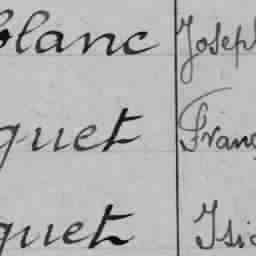 blanc Joseph
quet Franç
quet Isid